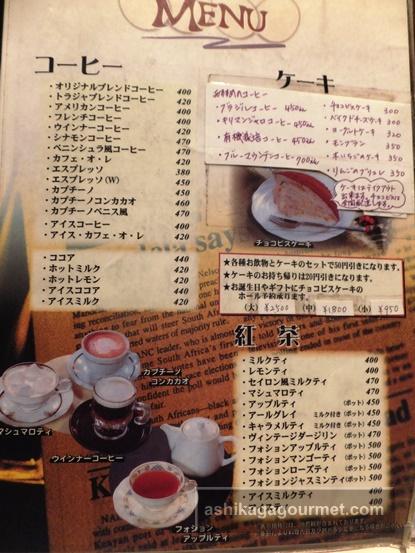 MENU
コーヒー
・オリジナルブレンドコーヒー 400
・トラジャブレンドコーヒー 420
・アメリカンコーヒー 400
・フレンチコーヒー 400
・ウインナーコーヒー 420
・シナモンコーヒー 420
・ペニンシュラ風コーヒー 470
・カフェ・オ・レ 420
・エスプレッソ 380
・エスプレッソ(W) 450
・カプチーノ 450
・カプチーノコンカカオ 460
・カプチーノベニス風 470
・アイスコーヒー 400
・アイス・カフェ・オ・レ 420
・ココア 440
・ホットミルク 420
・ホットレモン 420
・アイスココア 440
・アイスミルク 420
ケーキ
・ブラジルコーヒー 450
・キリマンジャロコーヒー 450
・ブルーマウンテンコーヒー 900
・チョコビスケーキ 300
・ベイクドチーズケーキ 350
・ヨーグルトケーキ 320
・モンブラン 350
・木いちごのケーキ 350
・りんごのブリュレ 350
ケーキはテイクアウト
チョコビスケーキ
★各種お飲物とケーキのセットで50円引きになります。
★ケーキのお持ち帰りは20円引きになります。
★お誕生日やギフトにチョコビスケーキの
ホール予約承ります。
(大) ¥2500 (中) ¥1800 (小) ¥950
紅茶
・ミルクティ 400
・レモンティ 400
・セイロン風ミルクティ 470
・マシュマロティ 470
・アップルティ (ポット) 450
・アールグレイ ミルク付き (ポット) 450
・キャラメルティ ミルク付き (ポット) 450
・ヴィンテージダージリン (ポット) 470
・フォションアップルティ (ポット) 500
・フォションマンゴーティ (ポット) 500
・フォションローズティ (ポット) 500
・フォションジャスミンティ (ポット) 500
・アイスミルクティ 400
カプチーノ
コンカカオ
マシュマロティ
ウインナーコーヒー
フォション
アップルティ
ashikagagourmet.com